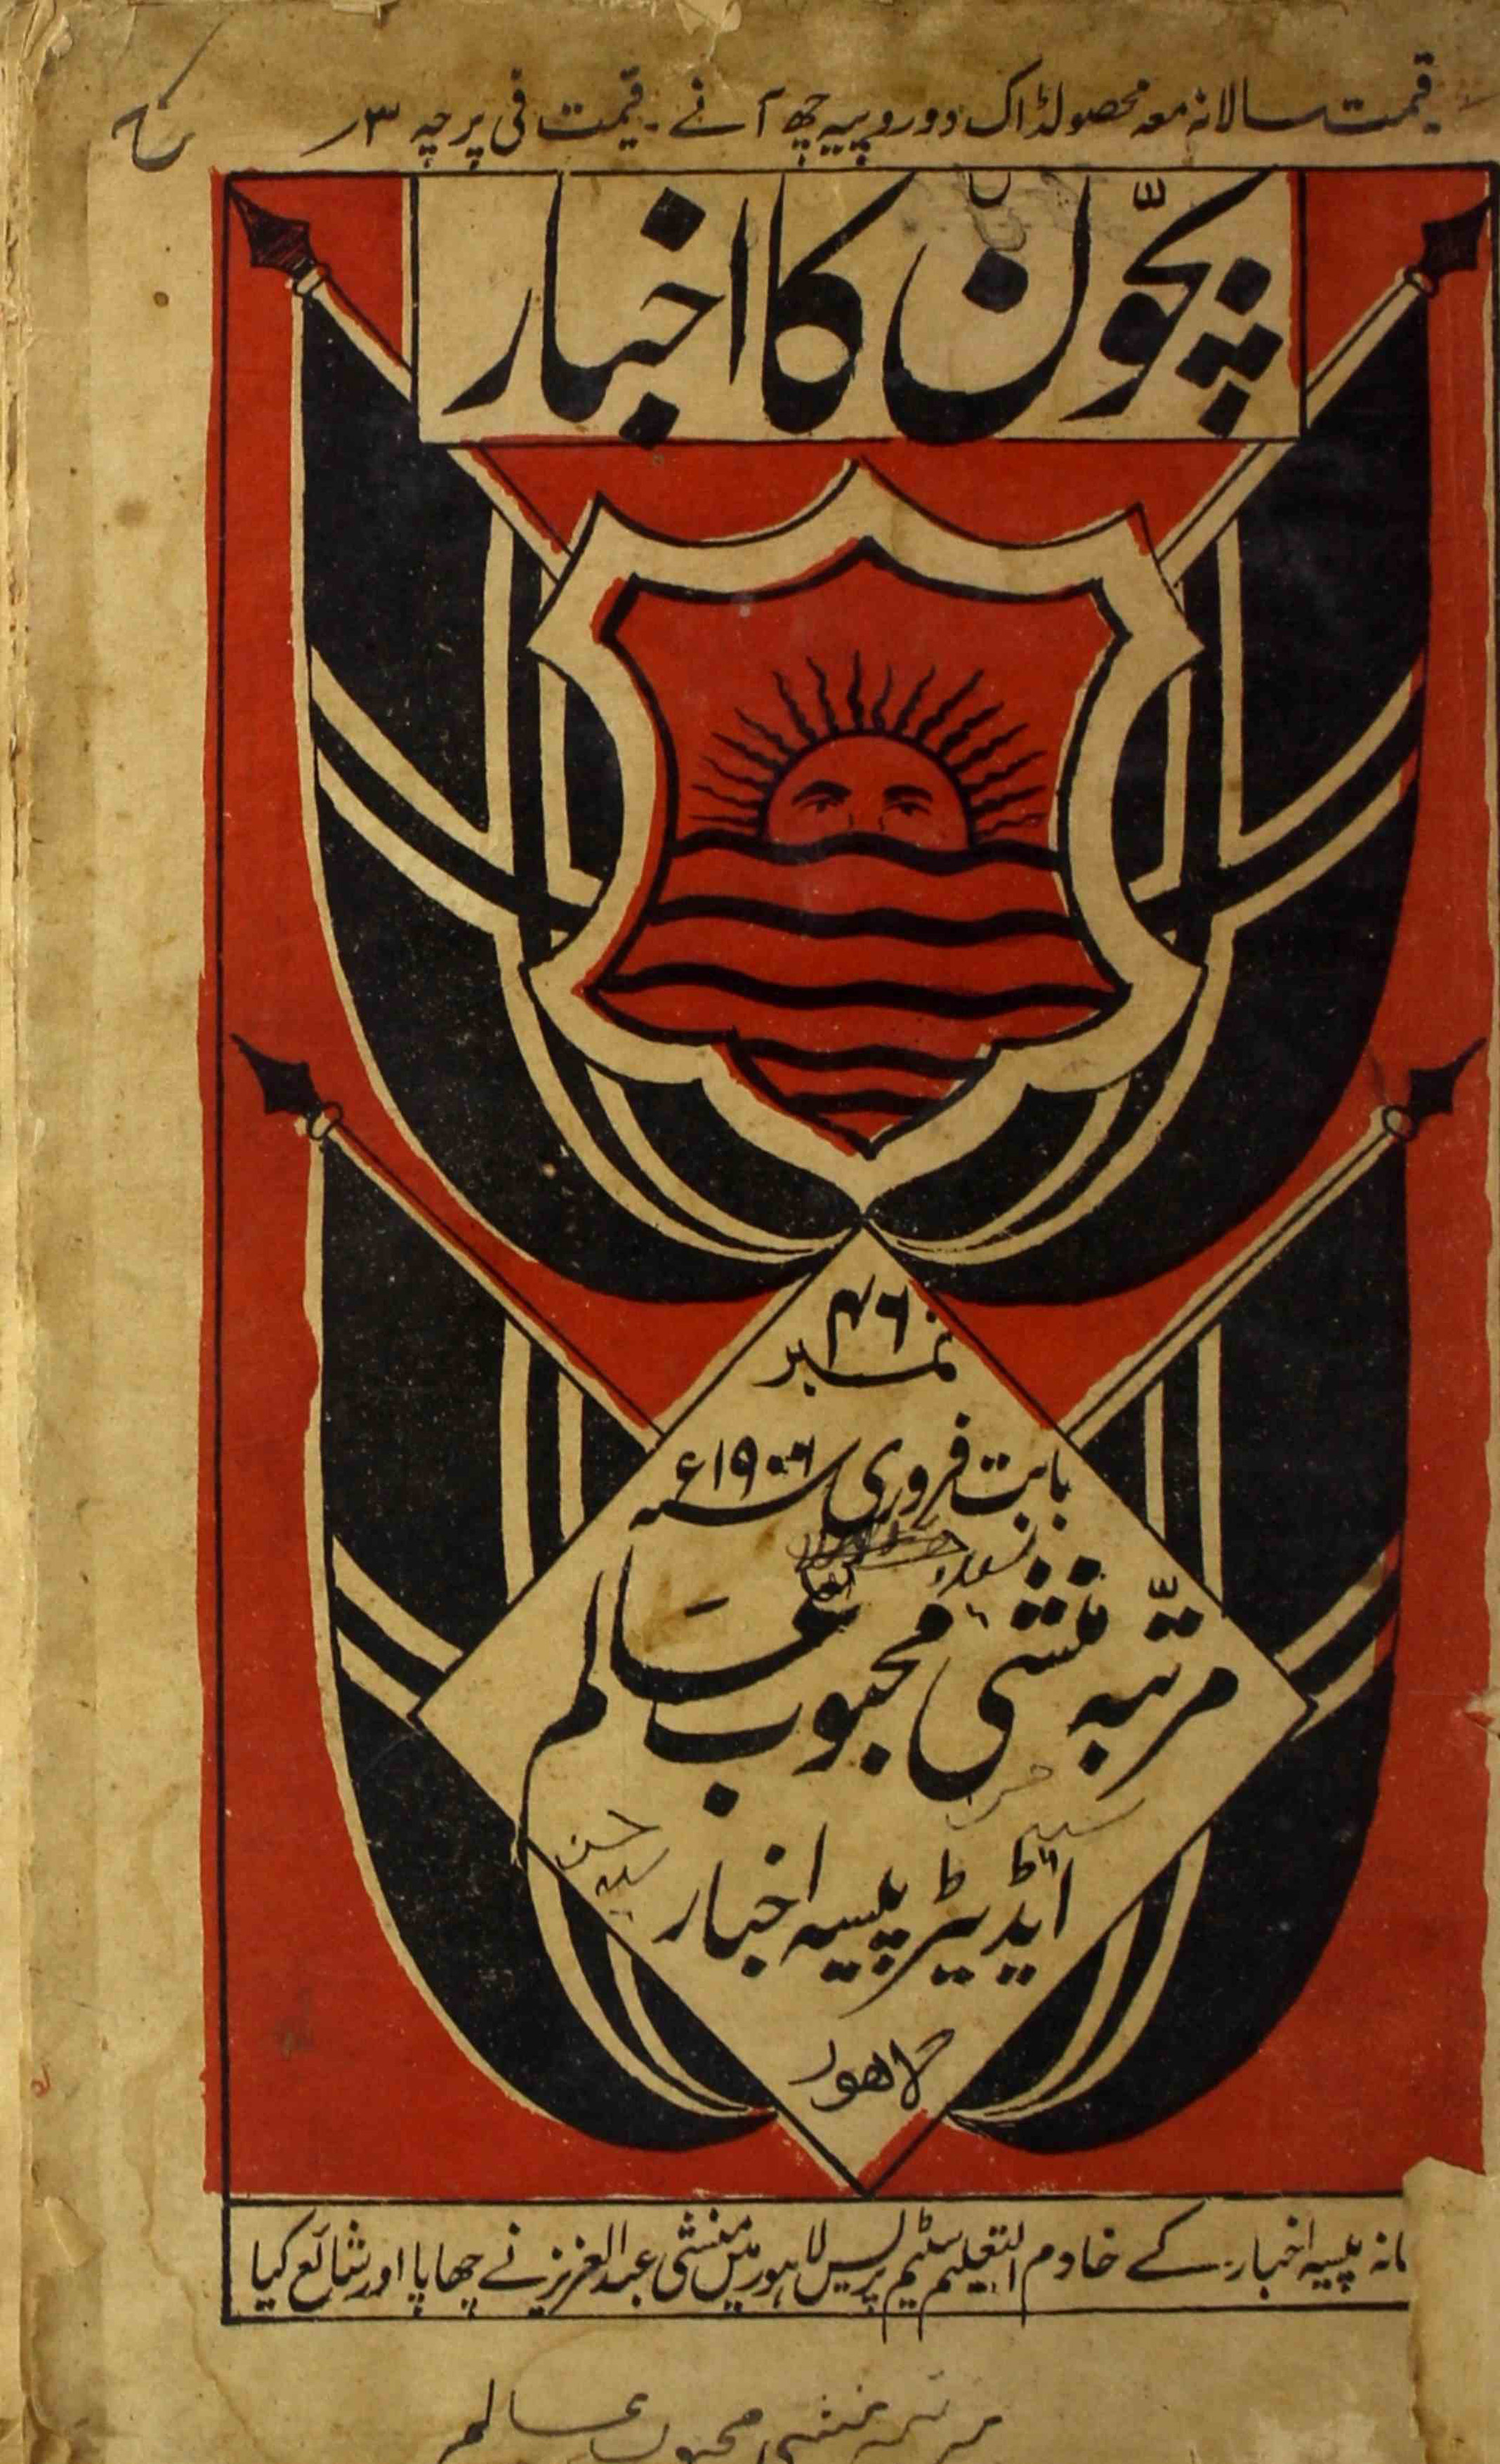 قیمت سالانہ معہ محصولڈاک دو روپیہ چھ آنے ۔ قیمت فی پرچہ ۳؍
بچّوں کا اخبار
نمبر ۴۶
بابت فروری سنہ ۱۹۰۶ء
مرتّبہ منشی محبوب عالم
ایڈیٹر پیسہ اخبار
لاہور
پیسہ اخبار کے خادم التعلیم سٹیم پریس لاہور میں منشی عبدالعزیز نے چھاپا اور شائع کیا
مرتبہ منشی محبوب عالم